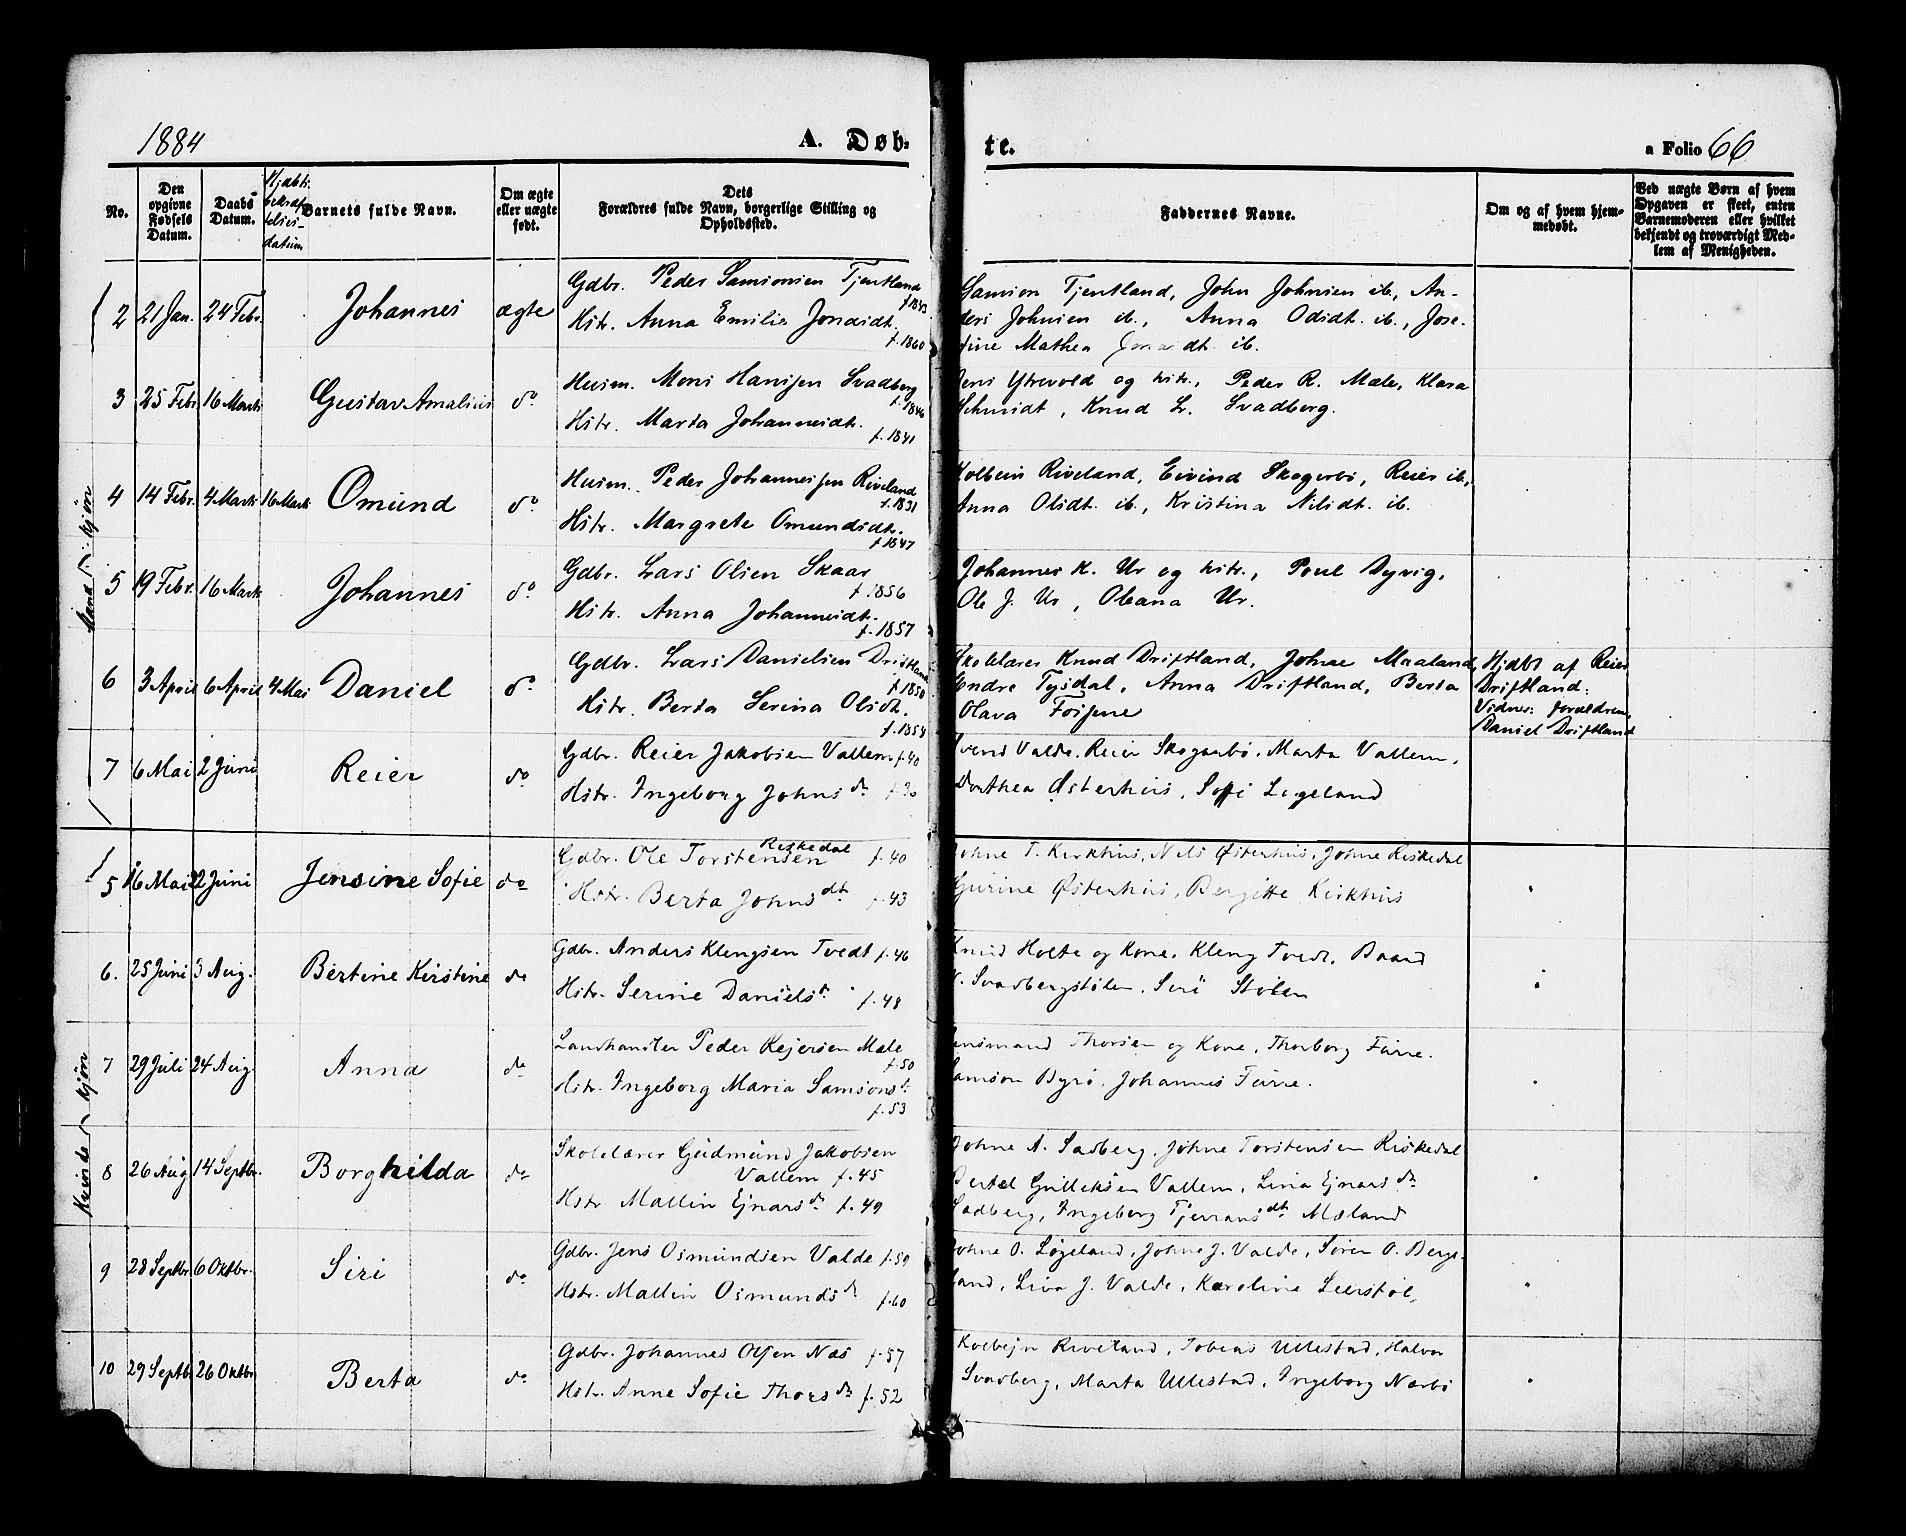 1884
A. Døb-
te.
a Folio 66
No.
Den opgivne Fødsels Datum.
Daabs Datum.
Hjdbts. bekræftelses-datum
Barnets fulde Navn.
Om ægte eller uægte født.
Dets Forældres fulde Navn, borgerlige Stilling og Opholdssted.
Faddernes Navne.
Om og af hvem hjemmedøbt.
Ved uægte Børn af hvem Opgaven er skeet, enten Barnemoderen eller hvilket bekjendt og troværdigt Medlem af Menigheden.
Mandkjøn
2 21 Jan. 24 Febr. Johannes ægte
Gdbr. Peder Samsonsen Tjentland f. 1853
Hstr. Anna Emilie Jonasdt. f. 1860
Samson Tjentland, John Johnsen ib., An-
ders Johnsen ib., Anna Olsdt. ib., Jose-
fine Mathea Jonasdt. ib.
3 25 Febr. 16 Marts Gustav Amalius do
Husm. Mons Hansen Svadberg f. 1846
Hstr. Marta Johannesdt. f. 1841
Jens Ytrevold og hstr., Peder R. Mæle, Klara
Schmidt, Knud L. Svadberg.
4 14 Febr. 4 Marts 16 Marts Omund do
Husm. Peder Johannessen Riveland f. 1831
Hstr. Margrete Omundsdtr. f. 1847
Kolbein Riveland, Eivind Skogerbø, Reier ib.,
Anna Olsdt. ib., Kristina Nilsdt. ib.
5 19 Febr. 16 Marts Johannes do
Gdbr. Lars Olsen Skaar f. 1856
Hstr. Anna Johannesdt. f. 1857
Johannes K. Ur og hstr., Poul Dyvig,
Ole J. Ur, Oleana Ur.
6 3 April 6 April 4 Mai Daniel do
Gdbr. Lars Danielsen Driftland f. 1850
Hstr. Berta Serina Olsdt. f. 1854
Skolelærer Knud Driftland, Johne Maaland,
Endre Tysdal, Anna Driftland, Berta
Olava Fossene
Hjdbt af Reier
Driftland:
Vidner: forældrene,
Daniel Driftland
7 6 Mai 2 Juni Reier do
Gdbr. Reier Jakobsen Vallem f. 40
Hstr. Ingeborg Johnsdr f. 36
Svend Valde, Reier Skogerbø, Marta Vallem,
Dorthea Østerhus, Sofi Løgeland
Kvindekjøn
5 16 Mai 22 Juni Jensine Sofie do
Gdbr. Ole Torstensen Riskedal f. 40
Hstr. Berta Johnsdt f. 43
Johne T. Kirkhus, Nils Østerhus, Johne Riskedal
Gurine Østerhus, Bergitte Kirkhus
6. 25 Juni 3 Aug. Bertine Kirstine do
Gdbr. Anders Klengsen Tvedt f. 46
Hstr. Serine Danielsdr. f. 48
Knud Holte og Kone, Kleng Tvedt, Baard
N. Svadbergstølen, Siri Stølen
7 29 Juli 24 Aug. Anna do
Landhandler Peder Rejersen Mæle f. 50
Hstr. Ingeborg Maria Samsonsdr f. 53
Lensmand Thorsen og Kone, Thorborg Furre.
Samson Byrø, Johannes Furre.
8 26 Aug 14 Septbr. Borghilda do
Skolelærer Gudmund Jakobsen
Vallem f. 45
Hstr. Mallin Ejnarsdr f. 49
Johne A. Sadberg, Johne Torstensen Riskedal
Bertel Gulleksen Vallem, Lina Ejnarsdr
Sadberg, Ingeborg Tjerransdt Mæland
9 28 Septbr 6 Oktbr. Siri do
Gdbr. Jens Osmundsen Valde f. 59
Hstr. Mallin Osmundsdr f. 60
Johne O. Løgeland, Johne J. Valde, Søren O. Berge-
land, Liva J. Valde, Karoline Leerstøl,
10 29 Septbr 26 Oktbr Berta do
Gdbr. Johannes Olsen Næs f. 57
Hstr. Anne Sofie Thorsdr f. 52
Kolbejn Riveland, Tobias Ullestad, Halvor
Svadberg, Marta Ullestad, Ingeborg Nærbø